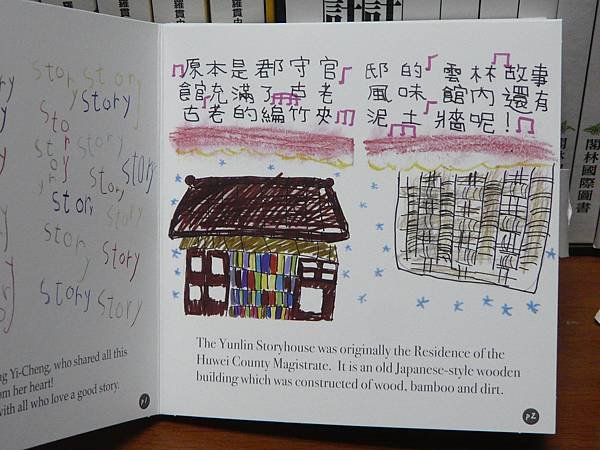 羅貫中
羅貫中
閣林國際圖書
閣林國際圖書
story story
story
story
story
story
story
story
story
story
story
story
story story
g Yi-Cheng, who shared all this
om her heart!
with all who love a good story.
原本是郡守官邸的雲林故事
館充滿了古老風味館內還有
古老的編竹夾泥土牆呢!
The Yunlin Storyhouse was originally the Residence of the
Huwei County Magistrate. It is an old Japanese-style wooden
building which was constructed of wood, bamboo and dirt.
p1
p2